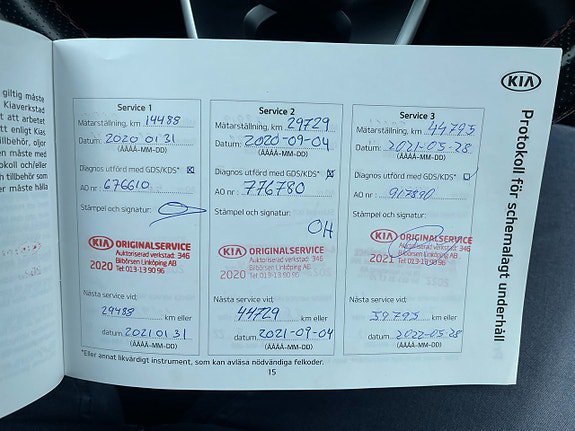 giltig måste
Kiaverkstad
att arbetet
enligt Kias
tillbehör, oljor
en måste med
okoll och/eller
h tillbehör som
e måste hålla
KIA
Protokoll för schemalagt underhåll
Service 1
Mätarställning, km 14488
Datum: 2020 01 31
(ÅÅÅÅ-MM-DD)
Diagnos utförd med GDS/KDS* ☒
AO nr: 676610
Stämpel och signatur:
KIA ORIGINALSERVICE
Auktoriserad verkstad: 346
Bilbörsen Linköping AB
2020 Tel: 013-13 90 96
Nästa service vid;
29488 km eller
datum: 2021 01 31
(ÅÅÅÅ-MM-DD)
Service 2
Mätarställning, km 29729
Datum: 2020-09-04
(ÅÅÅÅ-MM-DD)
Diagnos utförd med GDS/KDS* ☒
AO nr: 776780
Stämpel och signatur:
OH
KIA ORIGINALSERVICE
Auktoriserad verkstad: 346
Bilbörsen Linköping AB
2020 Tel: 013-13 90 96
Nästa service vid;
44729 km eller
datum: 2021-09-04
(ÅÅÅÅ-MM-DD)
Service 3
Mätarställning, km 44795
Datum: 2021-05-28
(ÅÅÅÅ-MM-DD)
Diagnos utförd med GDS/KDS*
AO nr:
Stämpel och signatur:
KIA ORIGINALSERVICE
Auktoriserad verkstad: 346
Bilbörsen Linköping AB
2021 Tel: 013-13 90 96
Nästa service vid;
59795 km eller
datum: 2022-05-28
(ÅÅÅÅ-MM-DD)
*Eller annat likvärdigt instrument, som kan avläsa nödvändiga felkoder.
15